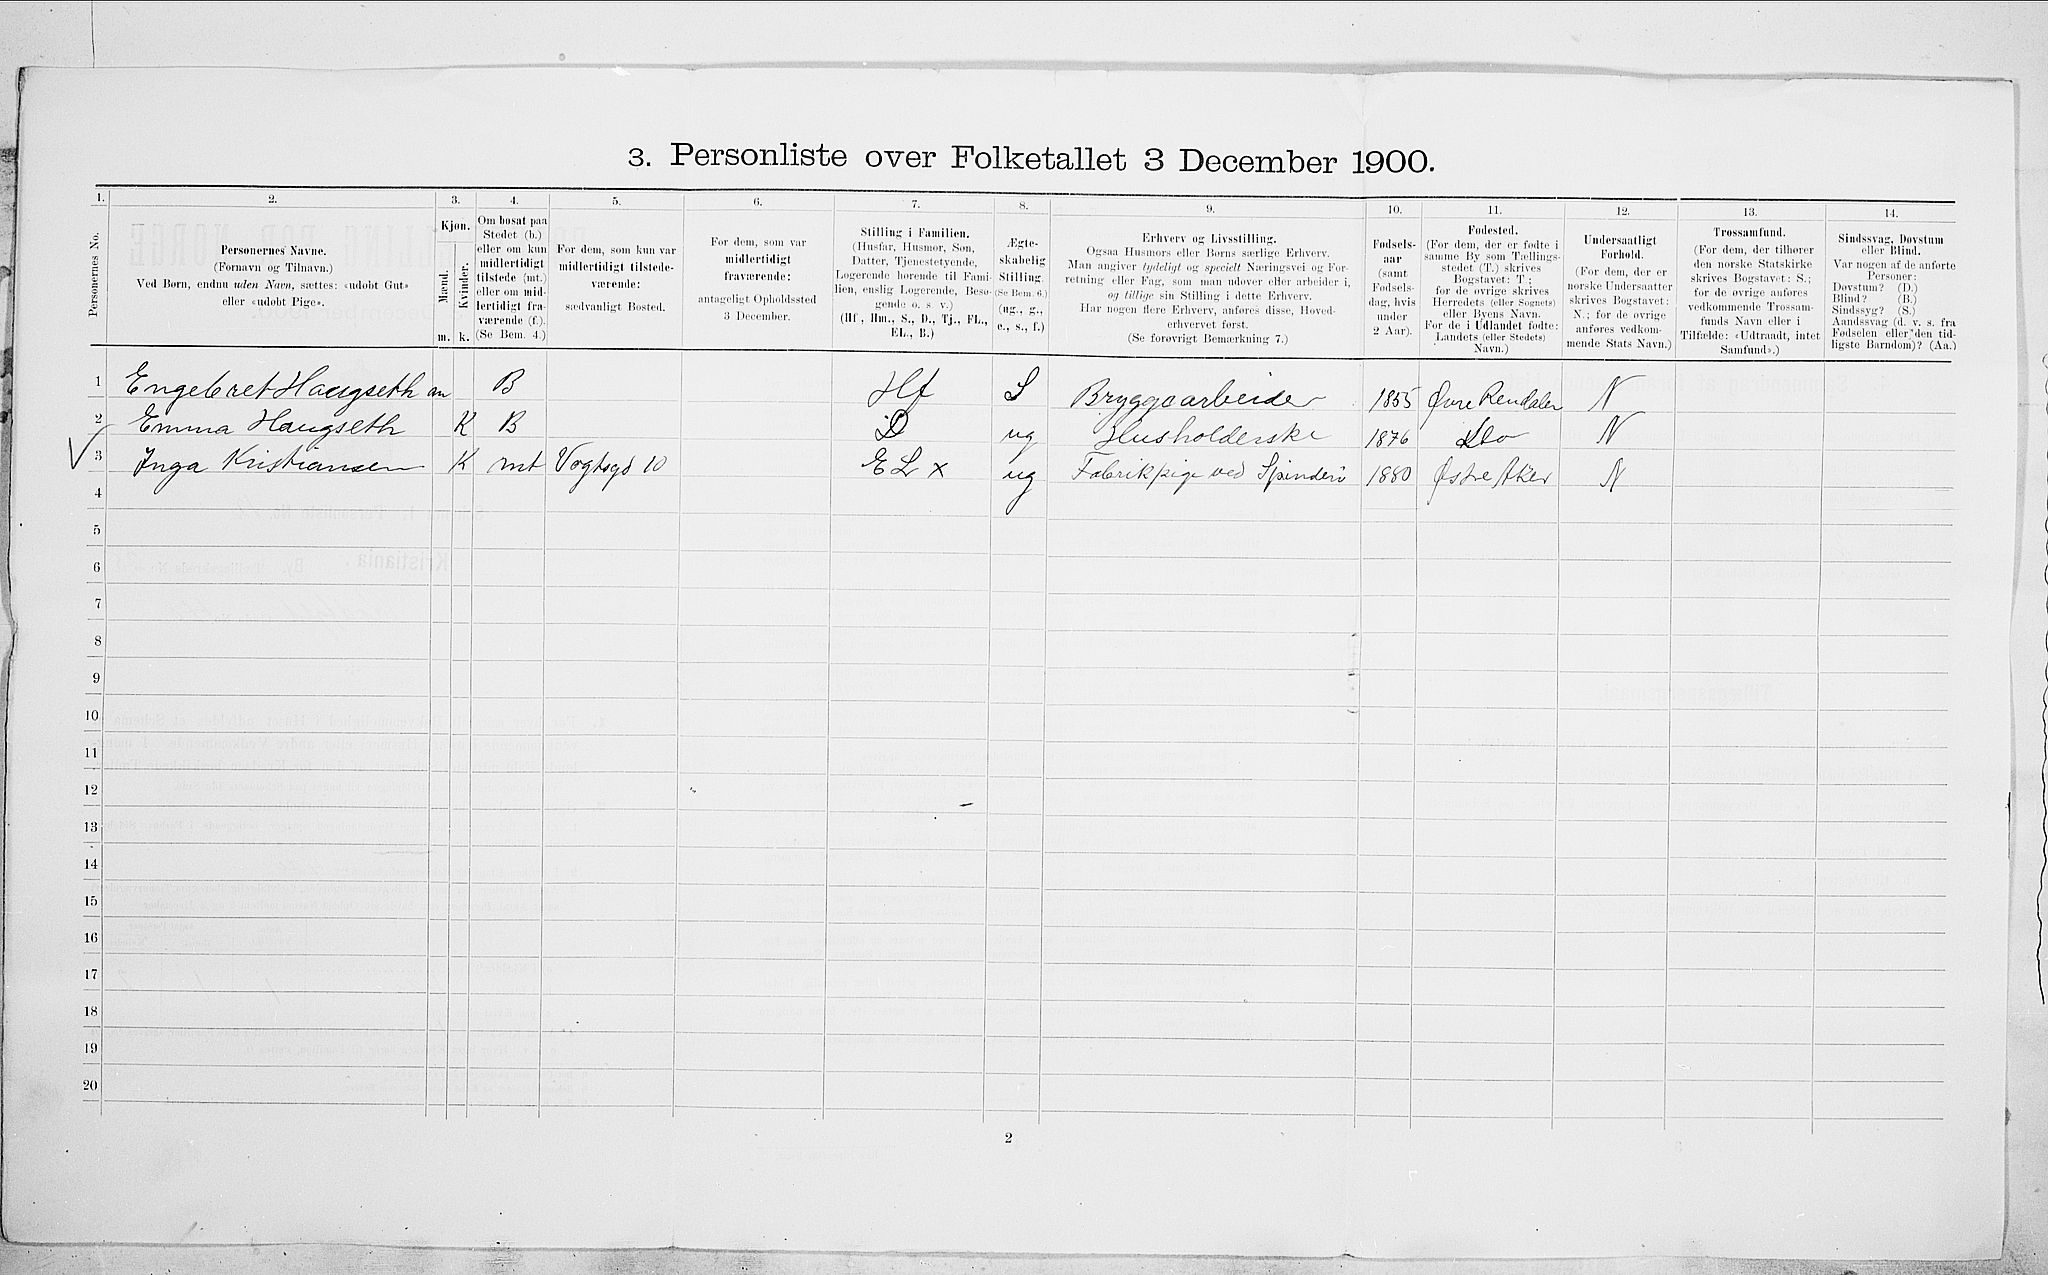 3. Personliste over Folketallet 3 December 1900.
1.
Personernes No.
2.
Personernes Navne.
(Fornavn og Tilnavn.)
Ved Børn, endnu uden Navn, sættes: «udøbt Gut»
eller «udøbt Pige».
3.
Kjøn.
Mænd.
Kvinder.
m. k.
4.
Om bosat paa
Stedet (b.)
eller om kun
midlertidigt
tilstede (mt.)
eller om mid-
lertidigt fra-
værende (f.).
(Se Bem. 4.)
5.
For dem, som kun var
midlertidigt tilstede-
værende:
sædvanligt Bosted.
6.
For dem, som var
midlertidigt
fraværende:
antageligt Opholdssted
3 December.
7.
Stilling i Familien.
(Husfar, Husmor, Søn,
Datter, Tjenestetyende,
Logerende hørende til Fami-
lien, enslig Logerende, Besø-
gende o. s. v.)
(Hf, Hm., S., D., Tj., FL.,
EL., B.)
8.
Ægte-
skabelig
Stilling.
(Se Bem. 6.)
(ug., g.,
e., s., f.)
9.
Erhverv og Livsstilling.
Ogsaa Husmors eller Børns særlige Erhverv.
Man angiver tydeligt og specielt Næringsvei og For-
retning eller Fag, som man udøver eller arbeider i,
og tillige sin Stilling i dette Erhverv.
Har nogen flere Erhverv, anføres disse, Hoved-
erhvervet først.
(Se forøvrigt Bemærkning 7.)
10.
Fødsels-
aar
(samt
Fødsels-
dag, hvis
under
2 Aar).
11.
Fødested.
(For dem, der er fødte i
samme By som Tællings-
stedet (T.) skrives
Bogstavet: T.;
for de øvrige skrives
Herredets (eller Sognets)
eller Byens Navn.
For de i Udlandet fødte:
Landets (eller Stedets)
Navn.)
12.
Undersaatligt
Forhold.
(For dem, der er
norske Undersaatter
skrives Bogstavet:
N.; for de øvrige
anføres vedkom-
mende Stats Navn.)
13.
Trossamfund.
(For dem, der tilhører
den norske Statskirke
skrives Bogstavet: S.;
for de øvrige anføres
vedkommende Trossam-
funds Navn eller i
Tilfælde: «Udtraadt, intet
Samfund».)
14.
Sindssvag, Døvstum
eller Blind.
Var nogen af de anførte
Personer:
Døvstum? (D.)
Blind? (B.)
Sindssyg? (S.)
Aandssvag (d. v. s. fra
Fødselen eller den tid-
ligste Barndom)? (Aa.)
1 Engebret Haugseth m B Hf S Bryggearbeider 1855 Øvre Rendalen N
2 Emma Haugseth K B D ug Husholderske 1876 Do N
3 Inga Kristiansen K mt Vogtsgd 10 EL x ug Fabrikpige ved Spinderi 1880 Østre Aker N
4
5
6
7
8
9
10
11
12
13
14
15
16
17
18
19
20
2